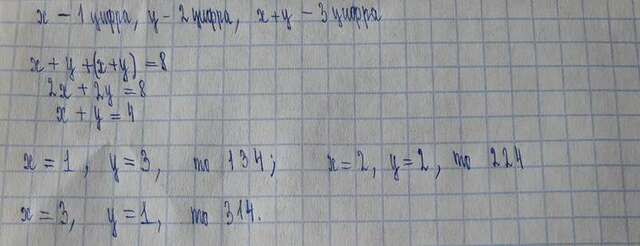 x - 1 цифра, y - 2 цифра, x+y - 3 цифра
x + y + (x+y) = 8
2x + 2y = 8
x + y = 4
x = 1, y = 3, то 134; x = 2, y = 2, то 224
x = 3, y = 1, то 314.